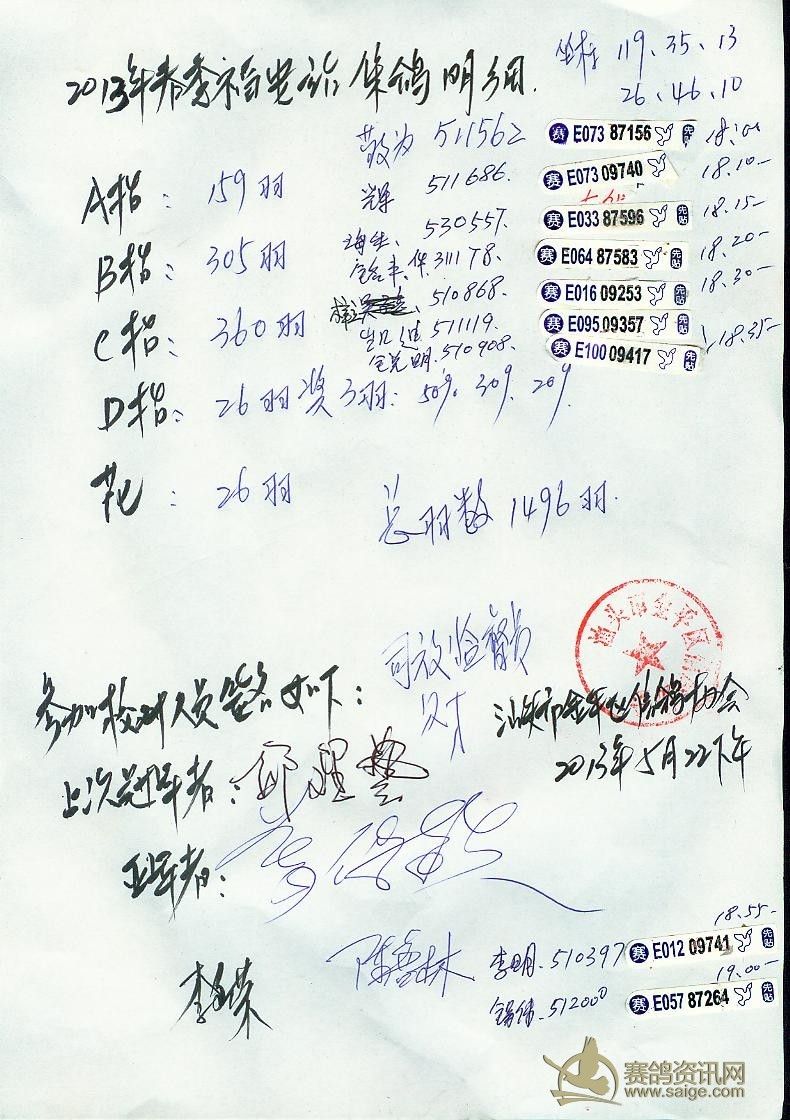 2013年春季福安站集鸽明细.
坐标 119.35.13
26.46.10
敬为 511562 赛 E073 87156 先贴 18:00
A指: 159羽 辉 511686. 赛 E073 09740 18.10-
530557. 赛 E033 87596 先贴 18.15-
B指: 305羽 31178. 赛 E064 87583 先贴 18.20-
510868. 赛 E016 09253 先贴 18.30-
C指: 360羽 511119. 赛 E095 09357 先贴
明.510908. 赛 E100 09417 先贴 18.35-
D指: 26羽奖3羽: 509. 309. 209.
花: 26羽 总羽数1496羽.
司放监督员
参加核对人员签名如下:
汕头市金平区信鸽协会
汕头市金平区信鸽
2013年5月22下午
上次冠军者:
亚军者:
18.55-
李明.510397 赛 E012 09741 先贴
19.00-
512000 赛 E057 87264 先贴
赛鸽资讯网
www.saige.com